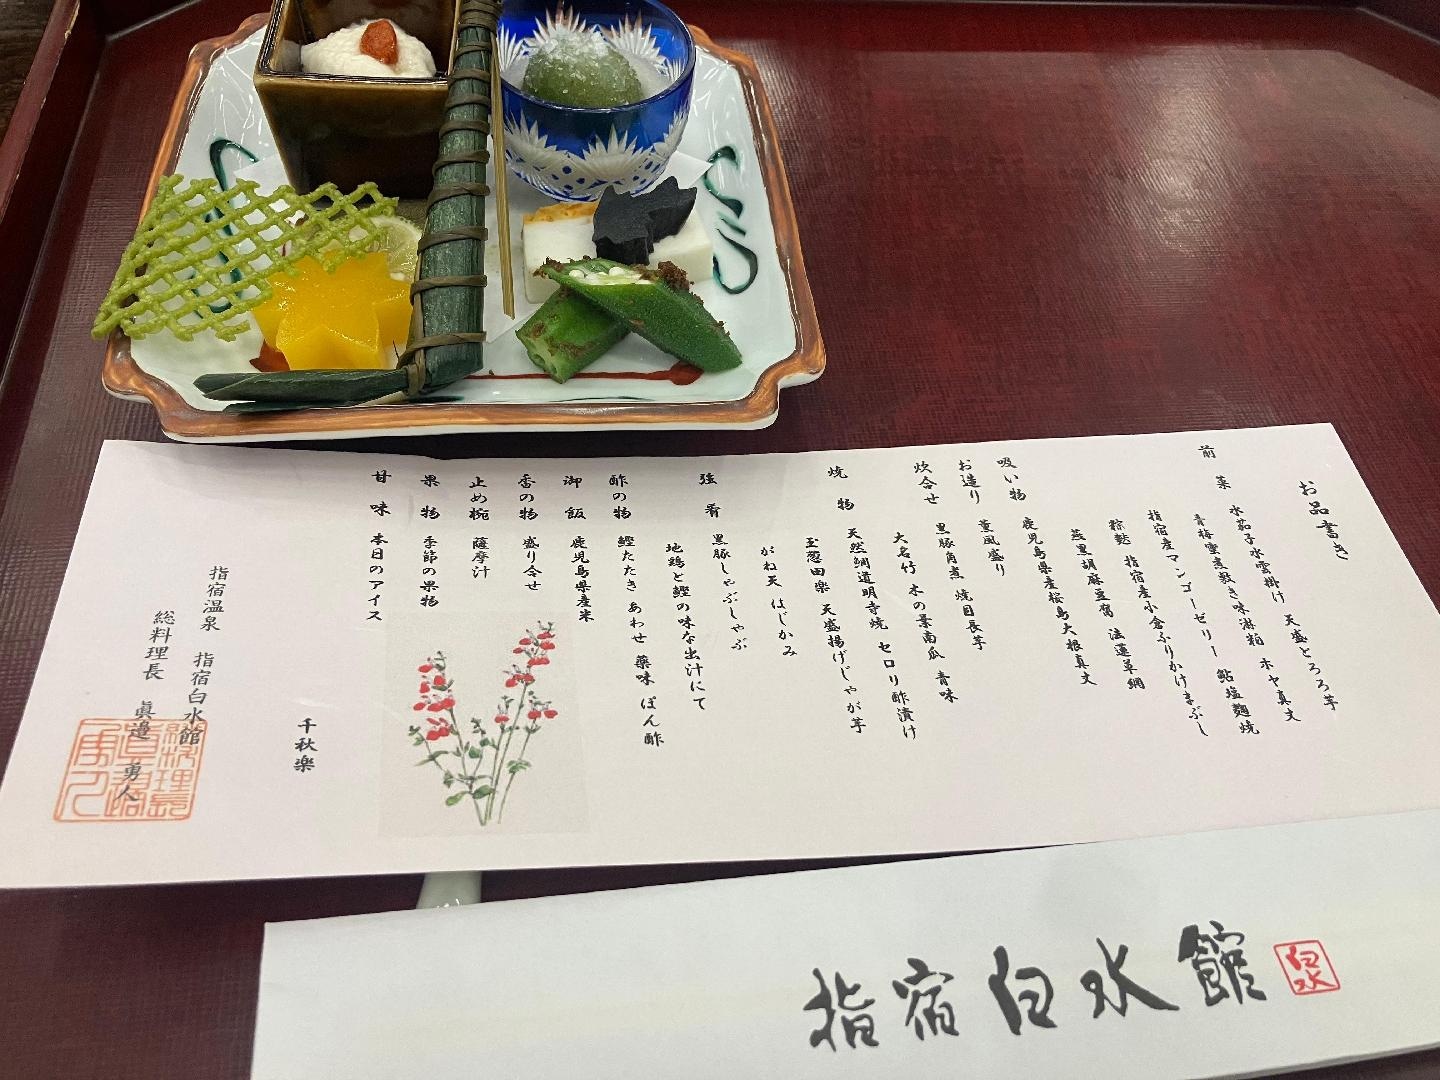 お品書き
前菜 水茄子水雲掛け 天盛とろろ芋
青梅蜜煮敷き味淋粕 ホヤ真丈
指宿産マンゴーゼリー 鮎塩麹焼
粽麩 指宿産小倉ふりかけまぶし
蒸黒胡麻豆腐 法蓮草網
吸い物 鹿児島県産桜島大根真丈
お造り 薫風盛り
炊合せ 黒豚角煮 焼目長芋
大名竹 木の葉南瓜 青味
焼物 天然鯛道明寺焼 セロリ酢漬け
玉葱田楽 天盛揚げじゃが芋
がね天 はじかみ
強肴 黒豚しゃぶしゃぶ
地鶏と鰹の味な出汁にて
酢の物 鰹たたき あわせ 薬味 ぽん酢
御飯 鹿児島県産米
香の物 盛り合せ
止め椀 薩摩汁
果物 季節の果物
甘味 本日のアイス
千秋楽
指宿温泉 指宿白水館
総料理長 眞邉 勇人
指宿白水館
白水